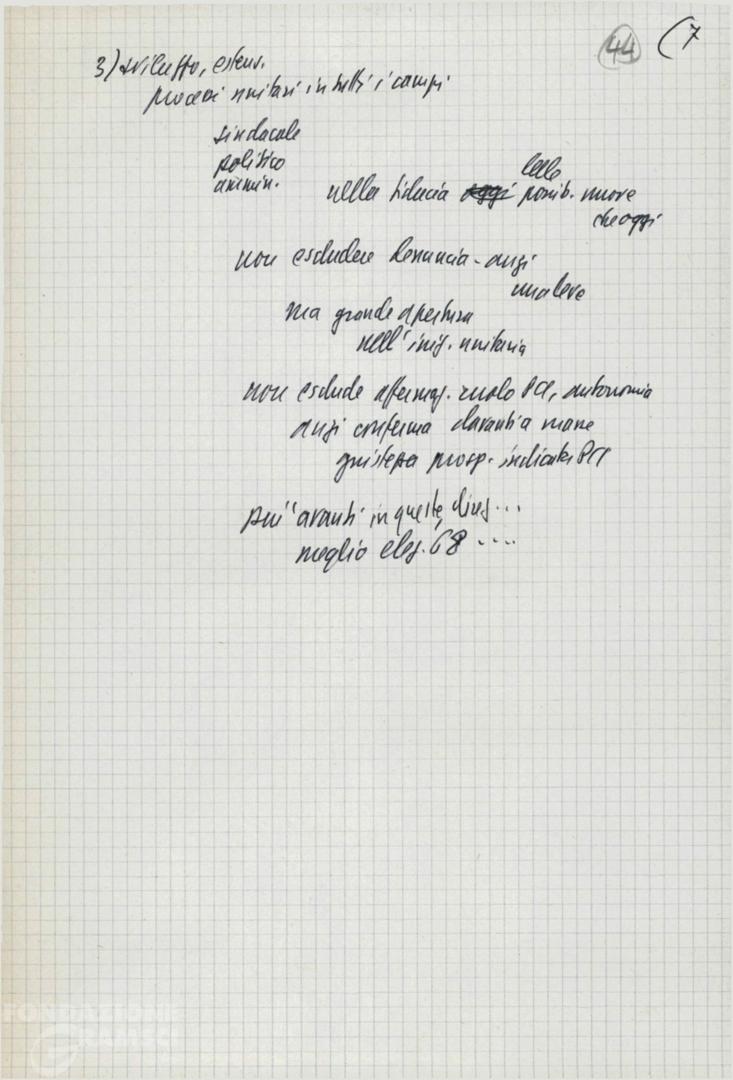 44 (7
3) sviluppo, estens.
processi unitari in tutti i campi
sindacale
politico
ammin.
delle
nella fiducia oggi possib. nuove
che oggi
non escludere denuncia - anzi
una leva
ma grande apertura
nell'iniz. unitaria
non esclude affermaz. ruolo PCI, autonomia
anzi conferma davanti a masse
giustezza prosp. indicate PCI
più avanti in queste direz...
meglio elez. 68 ....
FONDAZIONE
GRAMSCI